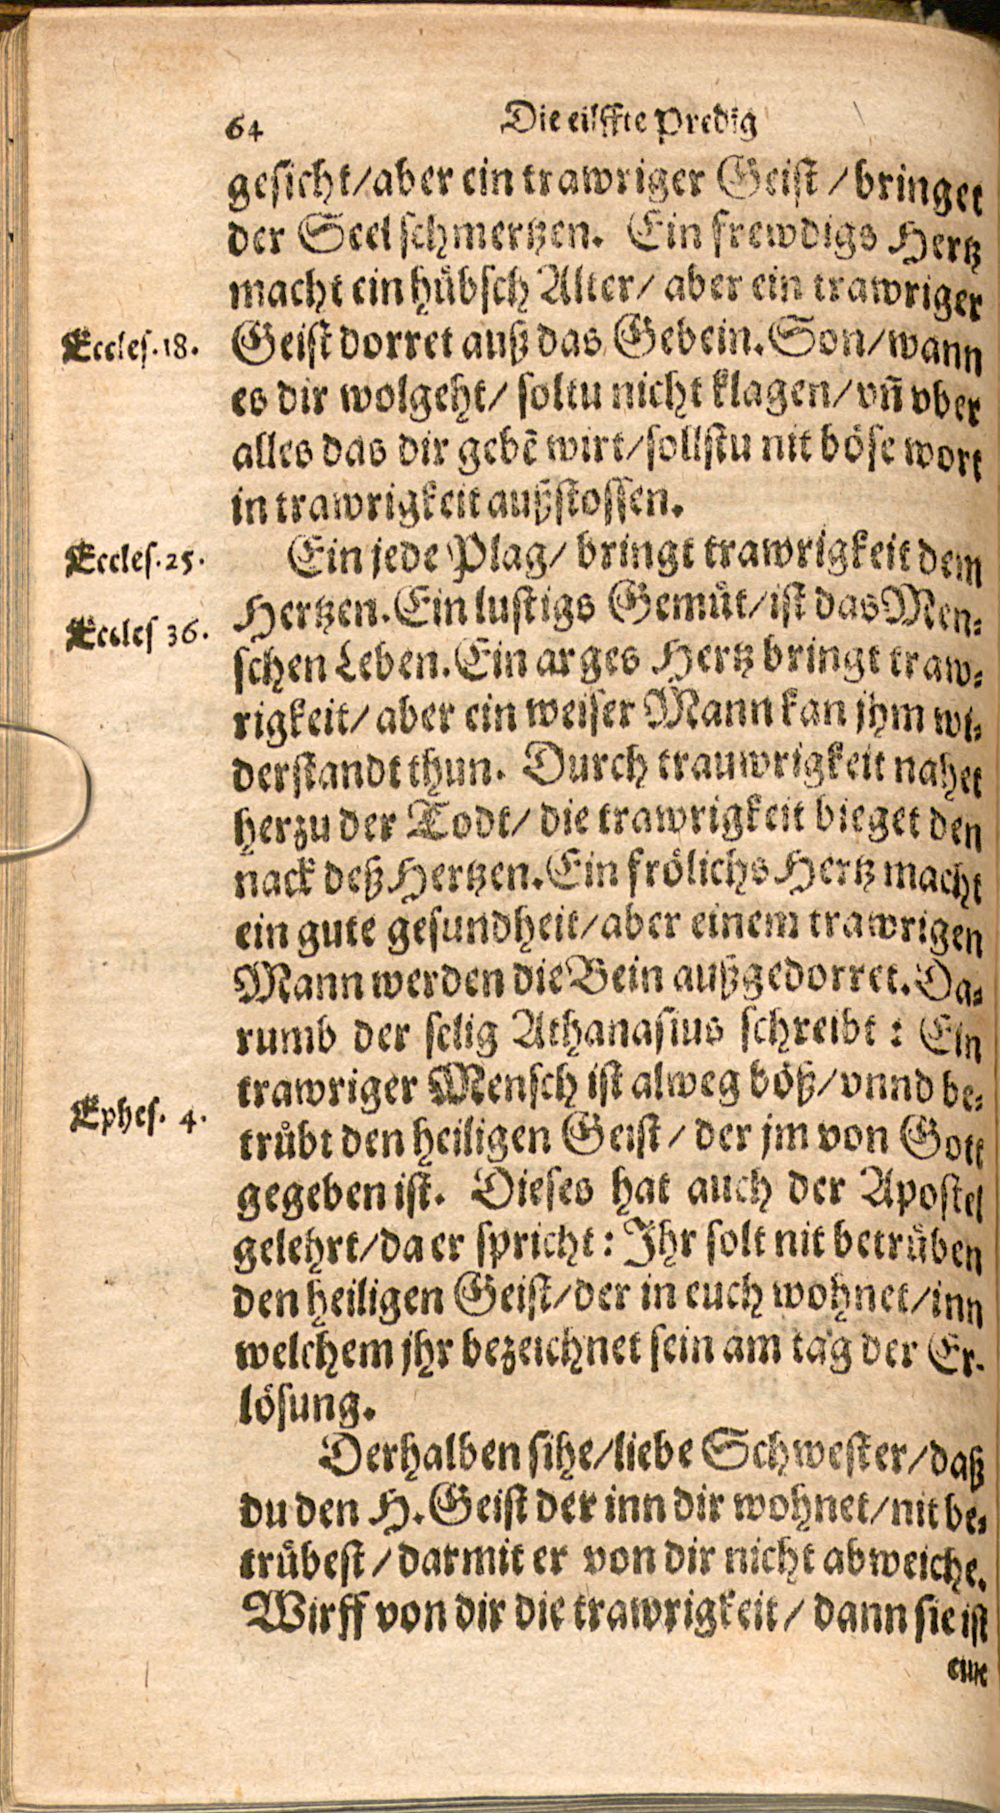 64 Die eilffte Predig
gesicht/aber ein trawriger Geist/bringet
der Seel schmertzen. Ein frewdigs Hertz
macht ein hübsch Alter/ aber ein trawriger
Eccles.18. Geist dorret auß das Gebein. Son/wann
es dir wolgeht/ soltu nicht klagen/vñ vber
alles das dir gebẽ wirt/sollstu nit böse wort
in trawrigkeit außstossen.
Eccles.25. Ein jede Plag/ bringt trawrigkeit dem
Eccles 36. Hertzen. Ein lustigs Gemüt/ist das Men-
schen Leben. Ein arges Hertz bringt traw-
rigkeit/ aber ein weiser Mann kan jhm wi-
derstandt thun. Durch trauwrigkeit nahet
herzu der Todt/ die trawrigkeit bieget den
nack deß Hertzen. Ein frölichs Hertz macht
ein gute gesundheit/aber einem trawrigen
Mann werden die Bein außgedorret. Da-
rumb der selig Athanasius schreibt: Ein
trawriger Mensch ist alweg böß/vnnd be-
Ephes. 4. trübt den heiligen Geist/ der jm von Gott
gegeben ist. Dieses hat auch der Apostel
gelehrt/da er spricht: Ihr solt nit betrüben
den heiligen Geist/der in euch wohnet/inn
welchem jhr bezeichnet sein am tag der Er-
lösung.
Derhalben sihe/liebe Schwester/daß
du den H. Geist der inn dir wohnet/nit be-
trübest/darmit er von dir nicht abweiche.
Wirff von dir die trawrigkeit/ dann sie ist
eine